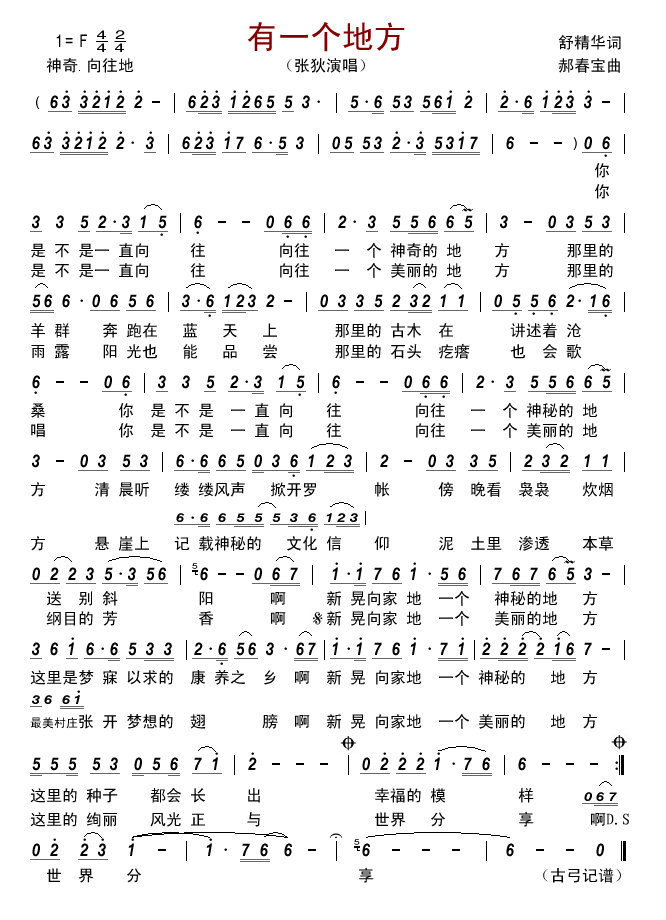 有一个地方
1= F 4/4 2/4
舒精华词
神奇. 向往地
（张狄演唱）
郝春宝曲
( 63 3212 2 – | 623 1265 5 3· | 5·6 53 561 2 | 2·6 123 3 – |
63 3212 2· 3 | 623 17 6·5 3 | 05 53 2·3 5317 | 6 – – ) 06 |
你
你
3 3 5 2·3 15 | 6 – – 066 | 2· 3 556 65 | 3 – 03 53 |
是 不 是一 直向 往 向往 一 个 神奇的 地 方 那里的
是 不 是一 直向 往 向往 一 个 美丽的 地 方 那里的
56 6· 06 56 | 3·6 123 2 – | 03 35 2 32 11 | 05 56 2·16 |
羊 群 奔 跑在 蓝 天 上 那里的 古木 在 讲述着 沧
雨 露 阳 光也 能 品 尝 那里的 石头 疙瘩 也 会 歌
6 – – 06 | 3 3 5 2·3 15 | 6 – – 066 | 2· 3 556 65 |
桑 你 是 不 是 一 直 向 往 向往 一 个 神秘的 地
唱 你 是 不 是 一 直 向 往 向往 一 个 美丽的 地
3 – 03 53 | 6·6 65 036 123 | 2 – 03 35 | 232 11 |
方 清 晨听 缕 缕风声 掀开罗 帐 傍 晚看 袅袅 炊烟
6·6 655 5 536 123 |
方 悬 崖上 记 载神秘的 文化 信 仰 泥 土里 渗透 本草
02 23 5·3 56 | 5 6 – – 067 | 1·1 76 1· 56 | 767 65 3 – |
送 别 斜 阳 啊 新 晃向家 地 一个 神秘的 地 方
纲目的 芳 香 啊 𝄋新 晃向家 地 一个 美丽的 地 方
36 1 6·6 533 | 2·6 56 3· 67 | 1·1 76 1· 71 | 222 2 16 7 – |
这里是梦 寐 以求的 康 养之 乡 啊 新 晃 向家地 一个 神秘的 地 方
36 61
最美村庄张 开 梦想的 翅 膀 啊 新 晃 向家地 一个 美丽的 地 方
555 53 056 71 | 2 – – – 𝄌| 02 22 1· 76 | 6 – – – 𝄌:||
这里的 种子 都会 长 出 幸福的 模 样 067
这里的 绚丽 风光 正 与 世界 分 享 啊D.S
02 23 1 – | 1· 76 6 – | 5 6 – – – | 6 – – 0 ||
世 界 分 享 （古弓记谱）